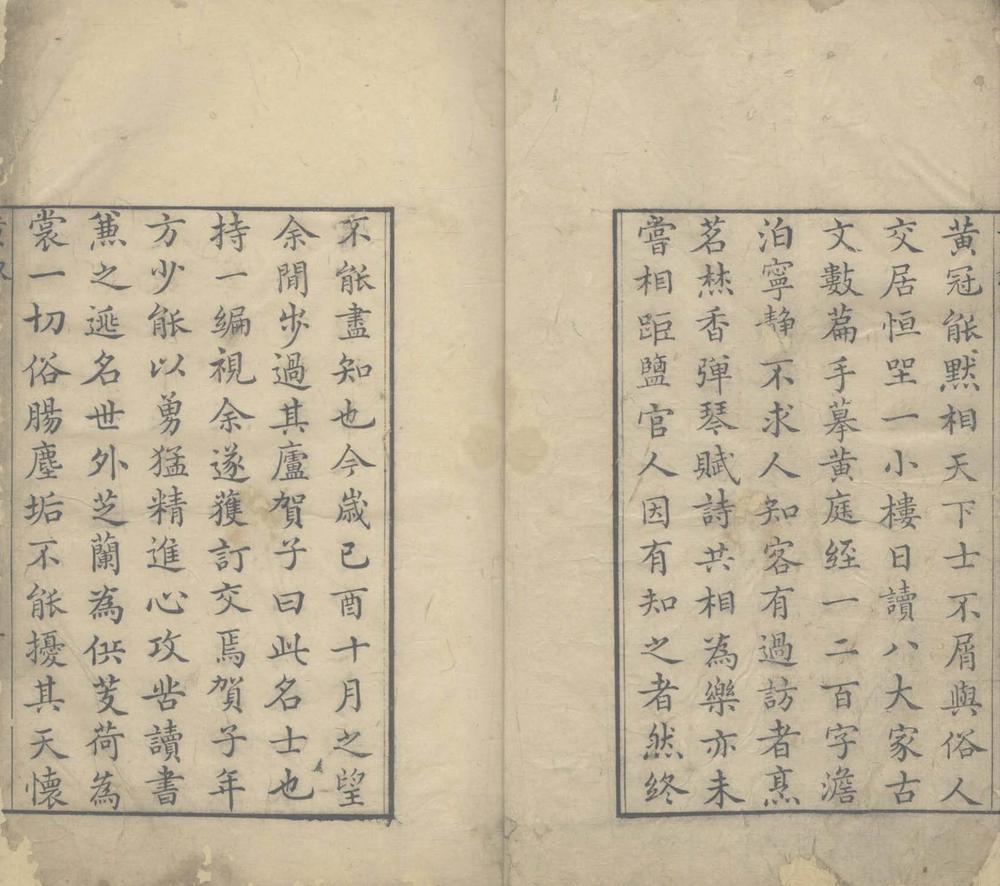 黄冠能黙相天下士不屑與俗人
交居恒坐一小樓日讀八大家古
文數篇手摹黄庭經一二百字澹
泊寧静不求人知客有過訪者烹
茗焚香彈琴賦詩共相為樂亦未
嘗相距鹽官人因有知之者然終
不能盡知也今嵗己酉十月之望
余間步過其廬賀子曰此名士也
持一編視余遂獲訂交焉賀子年
方少能以勇猛精進心攻苦讀書
兼之逃名世外芝蘭為供芰荷為
裳一切俗腸塵垢不能擾其天懷